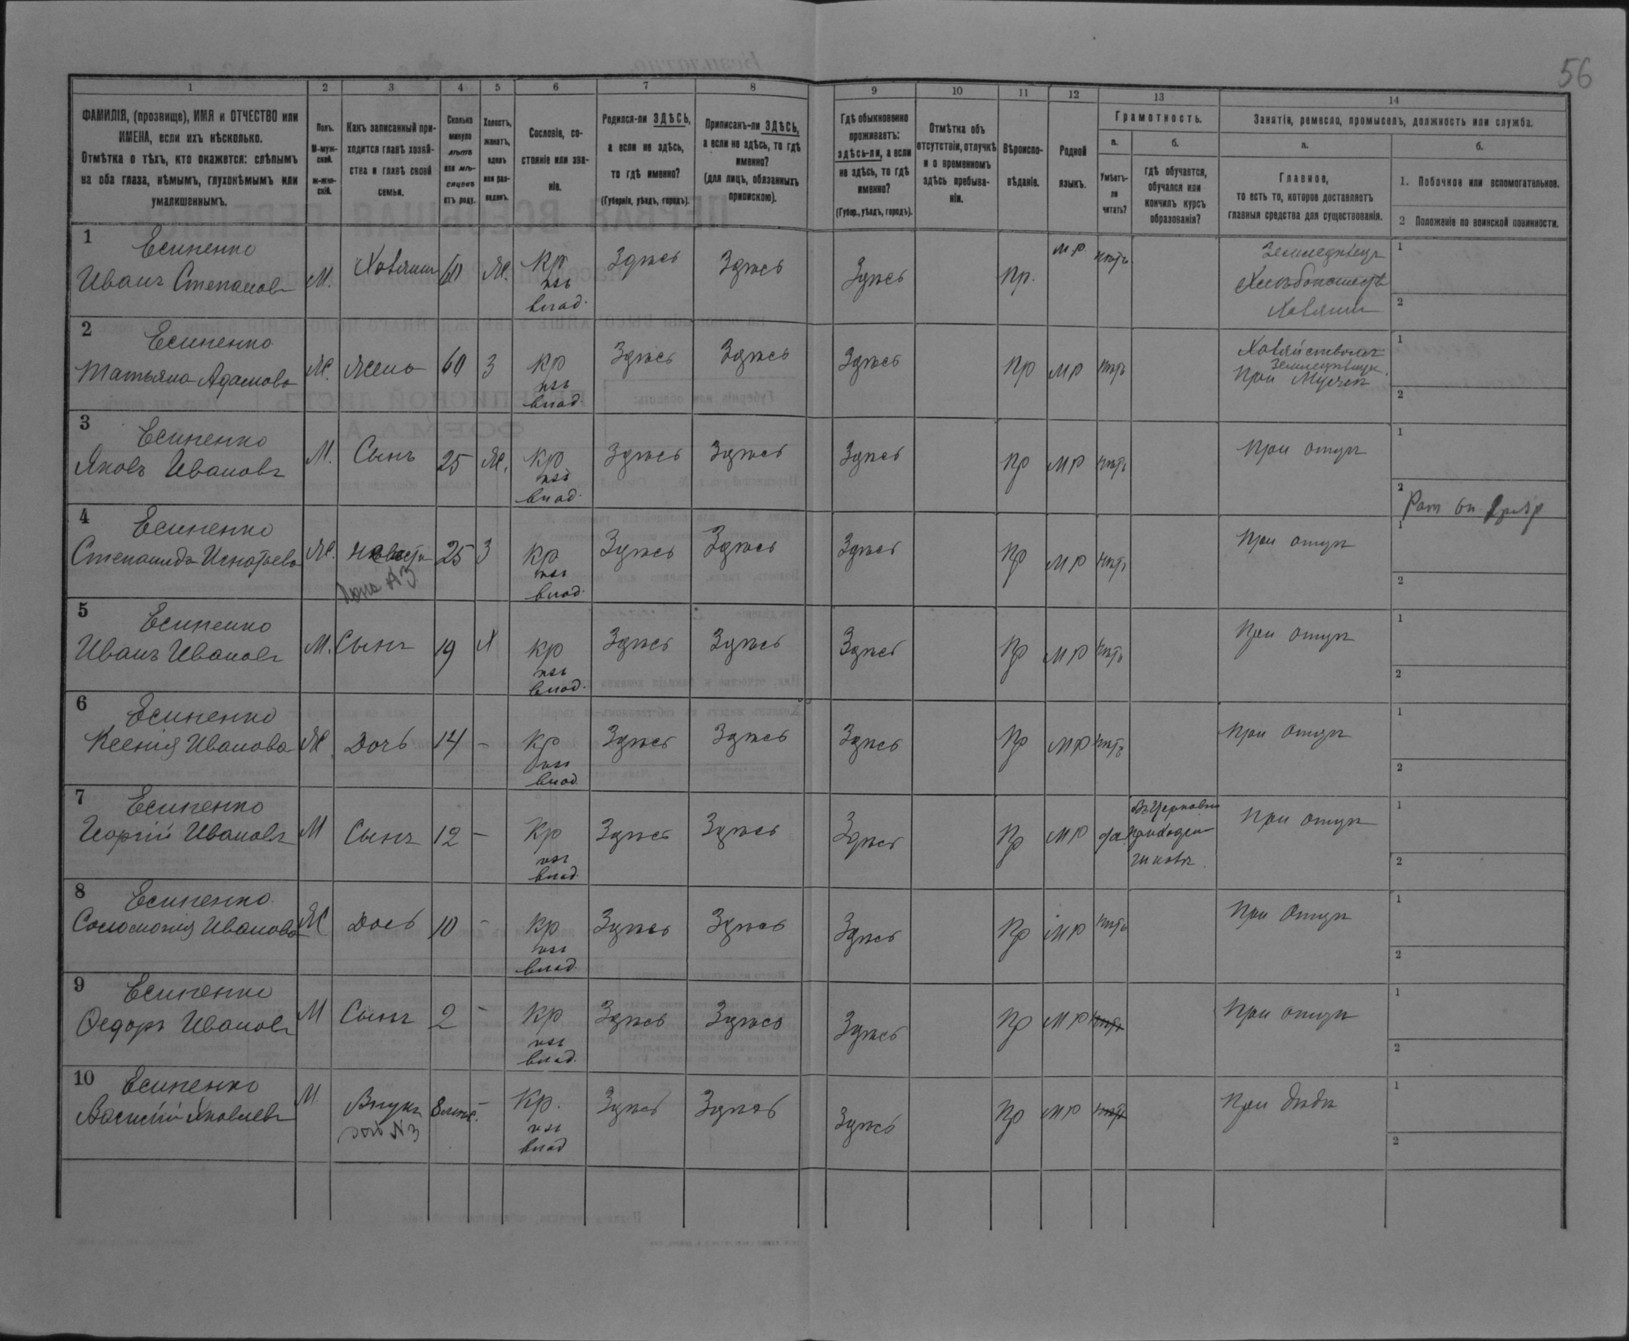 56
1 2 3 4 5 6 7 8 9 10 11 12 13 14
ФАМИЛІЯ, (прозвище), ИМЯ и ОТЧЕСТВО или
ИМЕНА, если ихъ нѣсколько.
Отмѣтка о тѣхъ, кто окажется: слѣпымъ
на оба глаза, нѣмымъ, глухонѣмымъ или
умалишеннымъ.
Полъ.
М-муж-
ской.
ж-жен-
скій.
Какъ записанный при-
ходится главѣ хозяй-
ства и главѣ своей
семьи.
Сколько
минуло
лѣтъ
или мѣ-
сяцевъ
отъ роду.
Холостъ,
женатъ,
вдовъ
или раз-
веденъ.
Сословіе, со-
стояніе или зва-
ніе.
Родился-ли ЗДѢСЬ,
а если не здѣсь,
то гдѣ именно?
(Губернія, уѣздъ, городъ).
Приписанъ-ли ЗДѢСЬ,
а если не здѣсь, то гдѣ
именно?
(для лицъ, обязанныхъ
припискою).
Гдѣ обыкновенно
проживаетъ:
здѣсь-ли, а если
не здѣсь, то гдѣ
именно?
(Губер., уѣздъ, городъ).
Отмѣтка объ
отсутствіи, отлучкѣ
и о временномъ
здѣсь пребыва-
ніи.
Вѣроиспо-
вѣданіе.
Родной
языкъ.
Грамотность.
а.
Умѣетъ-
ли
читать?
б.
гдѣ обучается,
обучался или
кончилъ курсъ
образованія?
Занятія, ремесло, промыселъ, должность или служба.
а.
Главное,
то есть то, которое доставляетъ
главныя средства для существованія.
б.
1. Побочное или вспомогательное.
2 Положеніе по воинской повинности.
1 Есипенко
Иванъ Степановъ М. Хозяинъ 60 Ж. Кр Здѣсь Здѣсь Здѣсь Пр. МР нѣтъ
влад.
Земледѣлецъ
Хозяинъ
1
2
2 Есипенко
Татьяна Адамова Ж. Жена 60 З Кр Здѣсь Здѣсь Здѣсь Пр МР нѣтъ
влад.
При Мужѣ
1
2
3 Есипенко
Яковъ Ивановъ М. Сынъ 25 Ж. Кр Здѣсь Здѣсь Здѣсь Пр МР нѣтъ При отцѣ
влад.
1
2
4 Есипенко
Степанида Игнатьева Ж. Невѣстка 25 З Кр Здѣсь Здѣсь Здѣсь Пр МР нѣтъ При отцѣ
жена №3
влад.
1
2
5 Есипенко
Иванъ Ивановъ М. Сынъ 19 Х Кр Здѣсь Здѣсь Здѣсь Пр МР нѣтъ При отцѣ
влад.
1
2
6 Есипенко
Ксенія Иванова Ж Дочь 14 - Кр Здѣсь Здѣсь Здѣсь Пр МР нѣтъ При отцѣ
влад
1
2
7 Есипенко
Георгій Ивановъ М Сынъ 12 - Кр Здѣсь Здѣсь Здѣсь Пр МР да При отцѣ
влад
1
2
8 Есипенко
Соломонія Иванова Ж Дочь 10 - Кр Здѣсь Здѣсь Здѣсь Пр МР нѣтъ При отцѣ
влад
1
2
9 Есипенко
Федоръ Ивановъ М Сынъ 2 - Кр Здѣсь Здѣсь Здѣсь Пр МР нѣтъ При отцѣ
влад.
1
2
10 Есипенко
Василій Яковлевъ М Внукъ Кр. Здѣсь Здѣсь Здѣсь Пр МР нѣтъ При дѣдѣ
влад
1
2